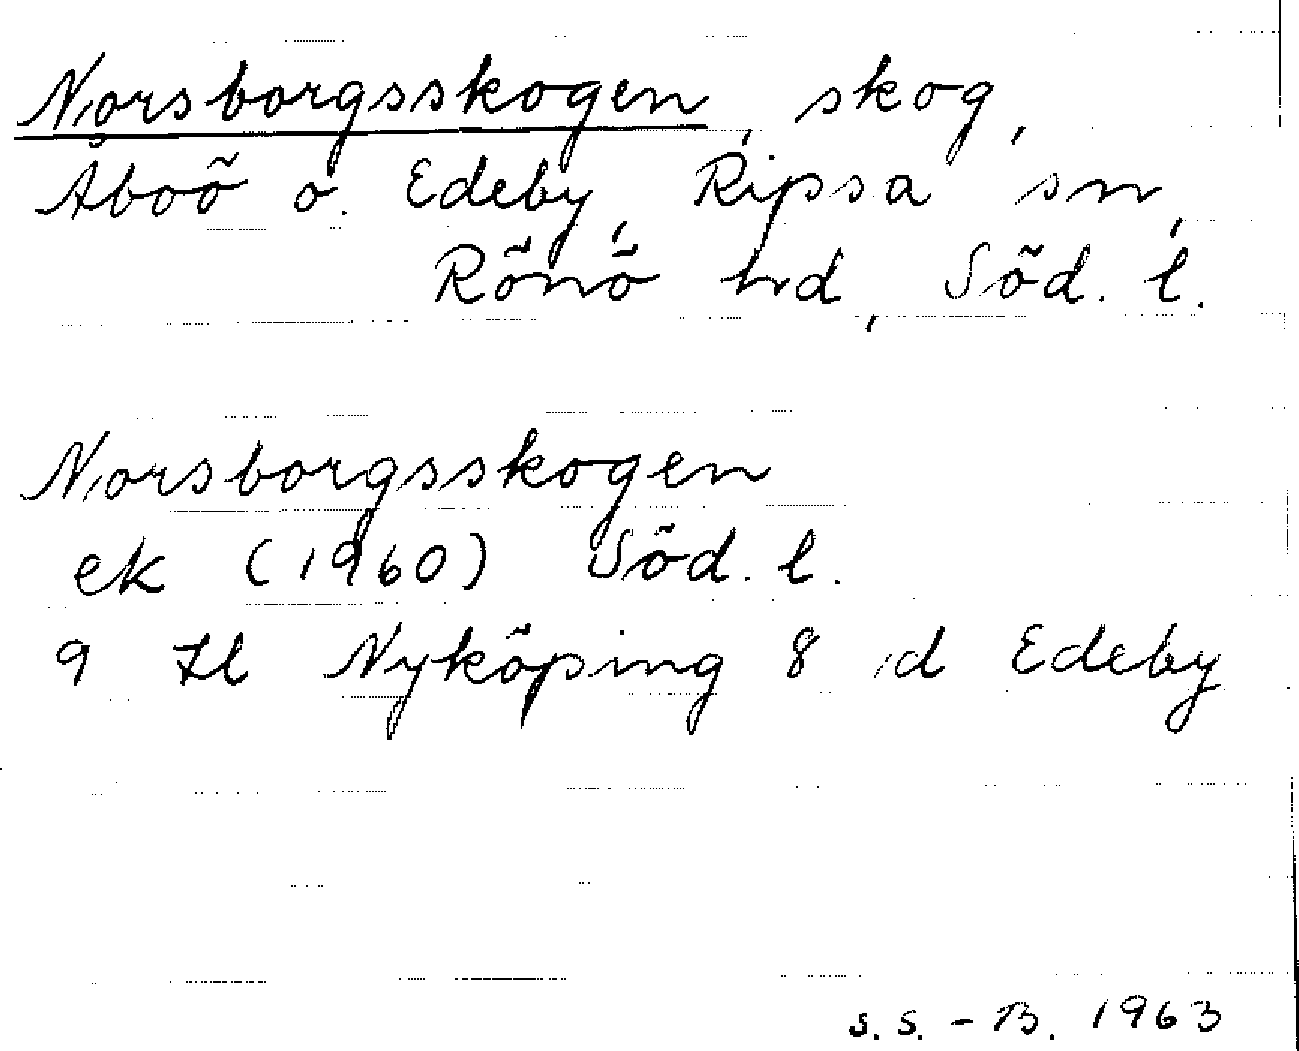 Norsborgsskogen, skog,
Åboö o. Edeby, Ripsa sn,
Rönö hd, Söd. l.
Norsborgsskogen
ek (1960) Söd. l.
9 H Nyköping 8 d Edeby
S.S.-B. 1963